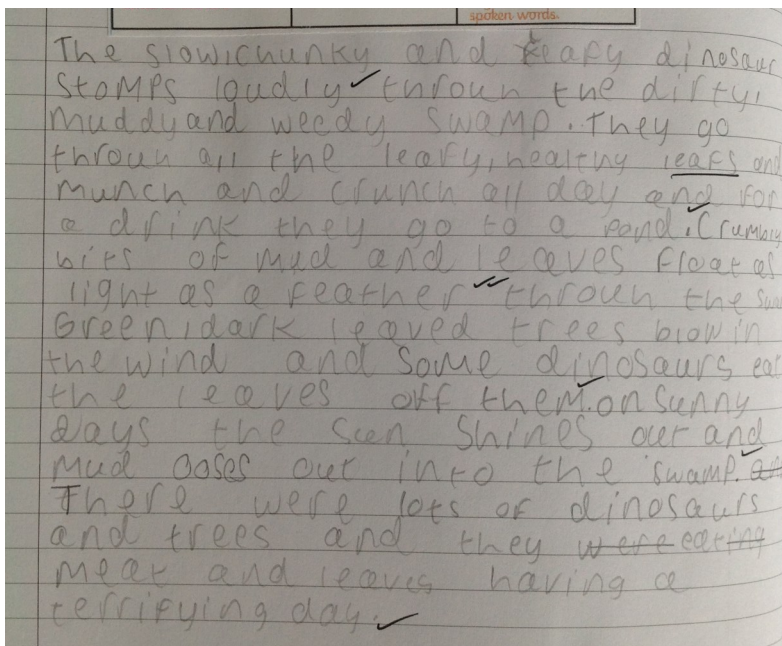 spoken words.
The slow, chunky and leafy dinosaur
stomps loudly throuh the dirty,
muddy and weedy swamp. They go
throuh all the leafy, healthy leafs and
munch and crunch all day and for
a drink they go to a pond. Crumbly
bits of mud and leaves float as
light as a feather throuh the
Green, dark leaved trees blow in
the wind and some dinosaurs eat
the leaves off them. on sunny
days the sun shines out and
mud ooses out into the swamp.
There were lots of dinosaurs
and trees and they were eating
meat and leaves having a
terrifying day.